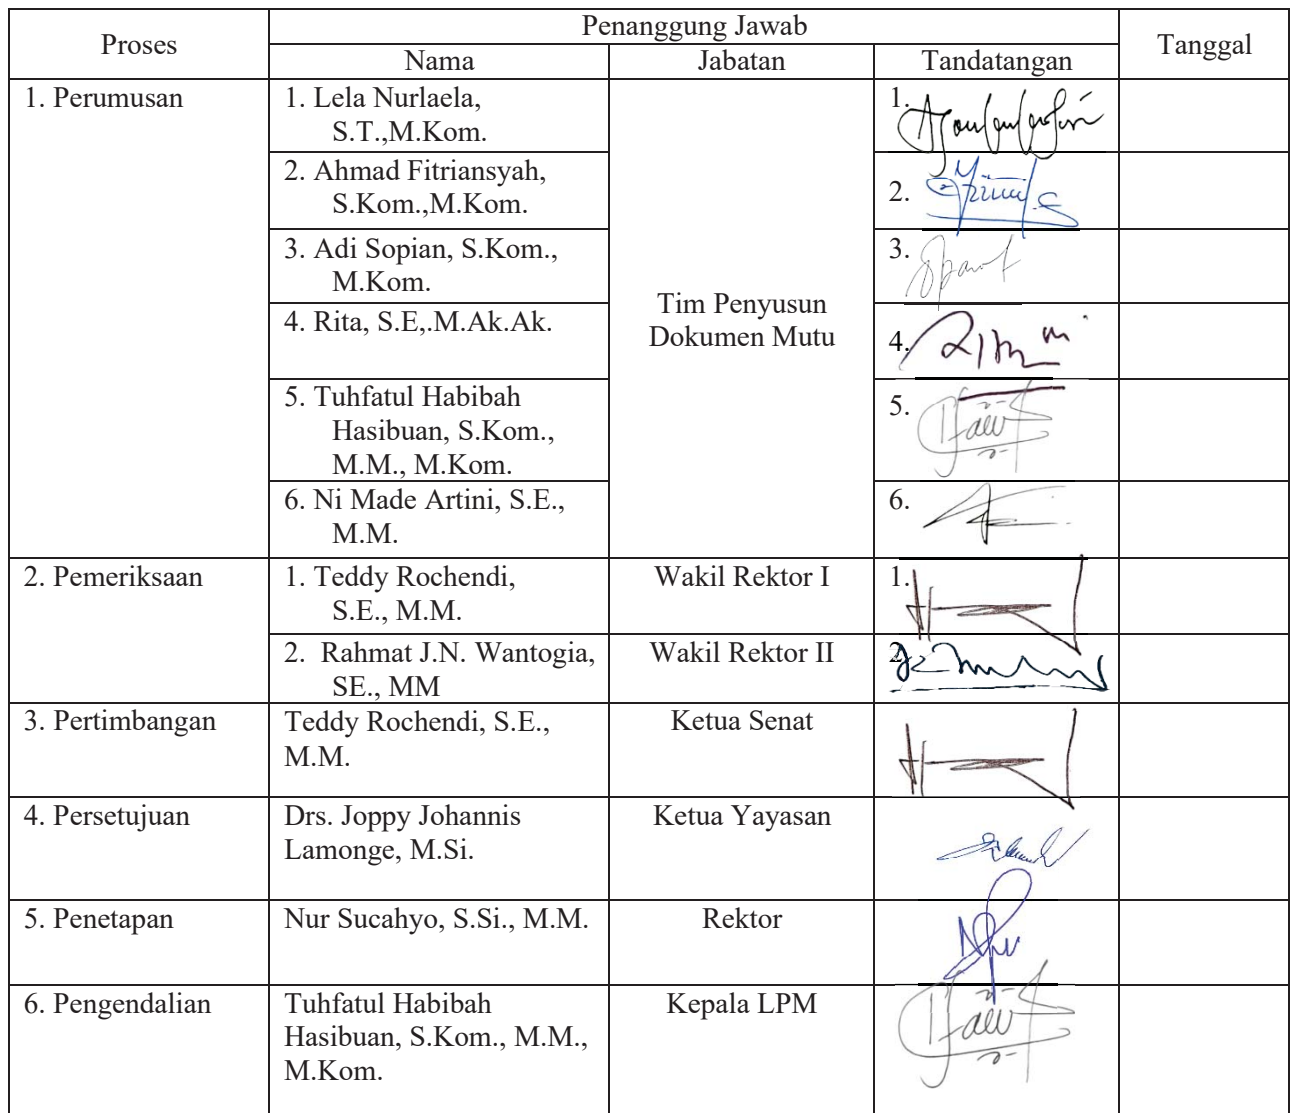 Proses
Penanggung Jawab
Tanggal
Nama
Jabatan
Tandatangan
1. Perumusan
1. Lela Nurlaela,
S.T.,M.Kom.
Tim Penyusun
Dokumen Mutu
1.
2. Ahmad Fitriansyah,
S.Kom.,M.Kom.
2.
3. Adi Sopian, S.Kom.,
M.Kom.
3.
4. Rita, S.E,.M.Ak.Ak.
4.
5. Tuhfatul Habibah
Hasibuan, S.Kom.,
M.M., M.Kom.
5.
6. Ni Made Artini, S.E.,
M.M.
6.
2. Pemeriksaan
1. Teddy Rochendi,
S.E., M.M.
Wakil Rektor I
1.
2. Rahmat J.N. Wantogia,
SE., MM
Wakil Rektor II
2.
3. Pertimbangan
Teddy Rochendi, S.E.,
M.M.
Ketua Senat
4. Persetujuan
Drs. Joppy Johannis
Lamonge, M.Si.
Ketua Yayasan
5. Penetapan
Nur Sucahyo, S.Si., M.M.
Rektor
6. Pengendalian
Tuhfatul Habibah
Hasibuan, S.Kom., M.M.,
M.Kom.
Kepala LPM